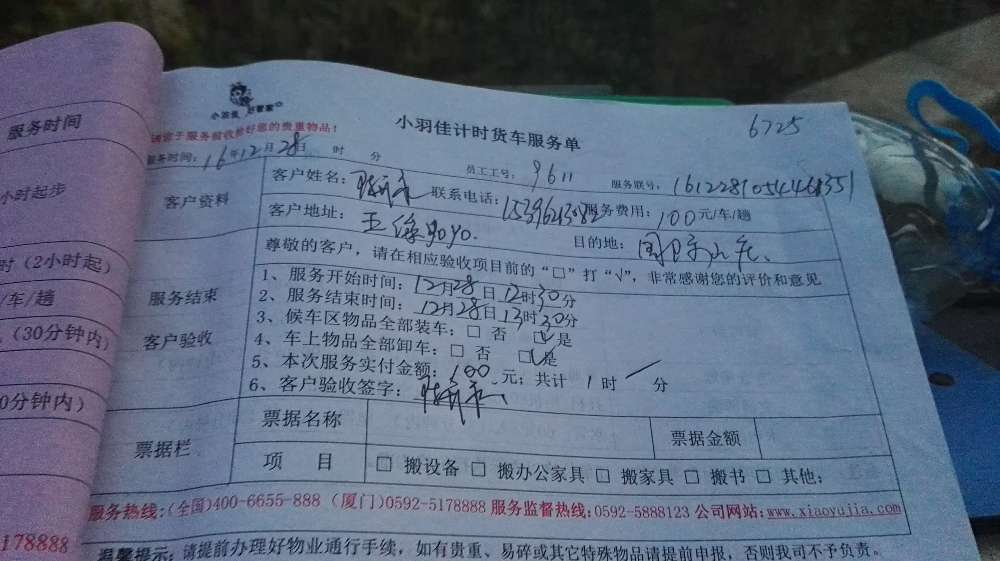 服务时间
小时起步
时(2小时起)
/车/趟
(30分钟内)
0分钟内)
178888
小羽佳 好管家
小羽佳计时货车服务单
6725
请您于服务前收好您的贵重物品!
服务时间: 16年12月28日 时 分 员工工号: 9611 服务联号:
客户资料
客户姓名: 联系电话: 服务费用: 100元/车/趟
客户地址: 目的地:
服务结束
客户验收
尊敬的客户,请在相应验收项目前的“□”打“√”,非常感谢您的评价和意见
1、服务开始时间: 12月28日12时30分
2、服务结束时间: 12月28日13时30分
3、候车区物品全部装车: □ 否 ☑ 是
4、车上物品全部卸车: □ 否 ☑ 是
5、本次服务实付金额: 100元; 共计 1 时 / 分
6、客户验收签字:
票据栏
票据名称 票据金额
项 目 □ 搬设备 □ 搬办公家具 □ 搬家具 □ 搬书 □ 其他:
服务热线:(全国)400-6655-888 (厦门)0592-5178888 服务监督热线:0592-5888123 公司网站:www.xiaoyujia.com
温馨提示: 请提前办理好物业通行手续,如有贵重、易碎或其它特殊物品请提前申报,否则我司不予负责。